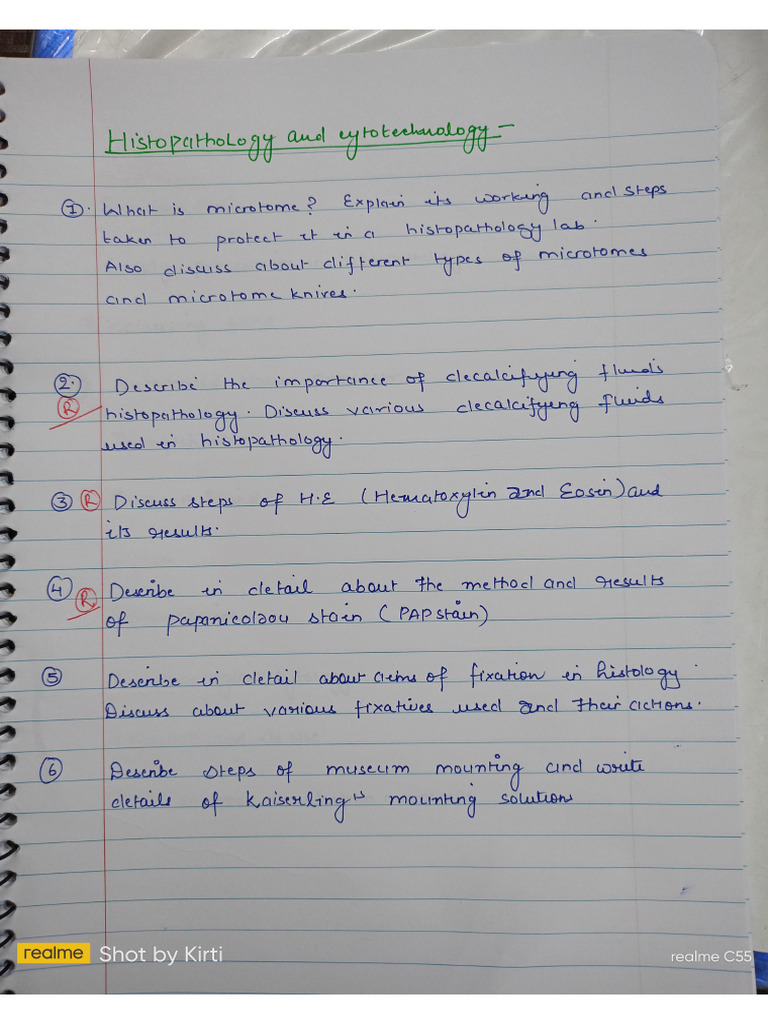 Histopathology and cytotechnology -
① What is microtome? Explain its working and steps
taken to protect it in a histopathology lab.
Also discuss about different types of microtomes
and microtome knives.
② Describe the importance of decalcifying fluids
R histopathology. Discuss various decalcifying fluids
used in histopathology.
③ R Discuss steps of H.E (Hematoxylin and Eosin) and
its results.
④ Describe in detail about the method and results
R of papanicolaou stain (PAP stain)
⑤ Describe in detail about aims of fixation in histology.
Discuss about various fixatives used and their actions.
⑥ Describe steps of museum mounting and write
details of Kaiserling's mounting solution
realme Shot by Kirti
realme C55